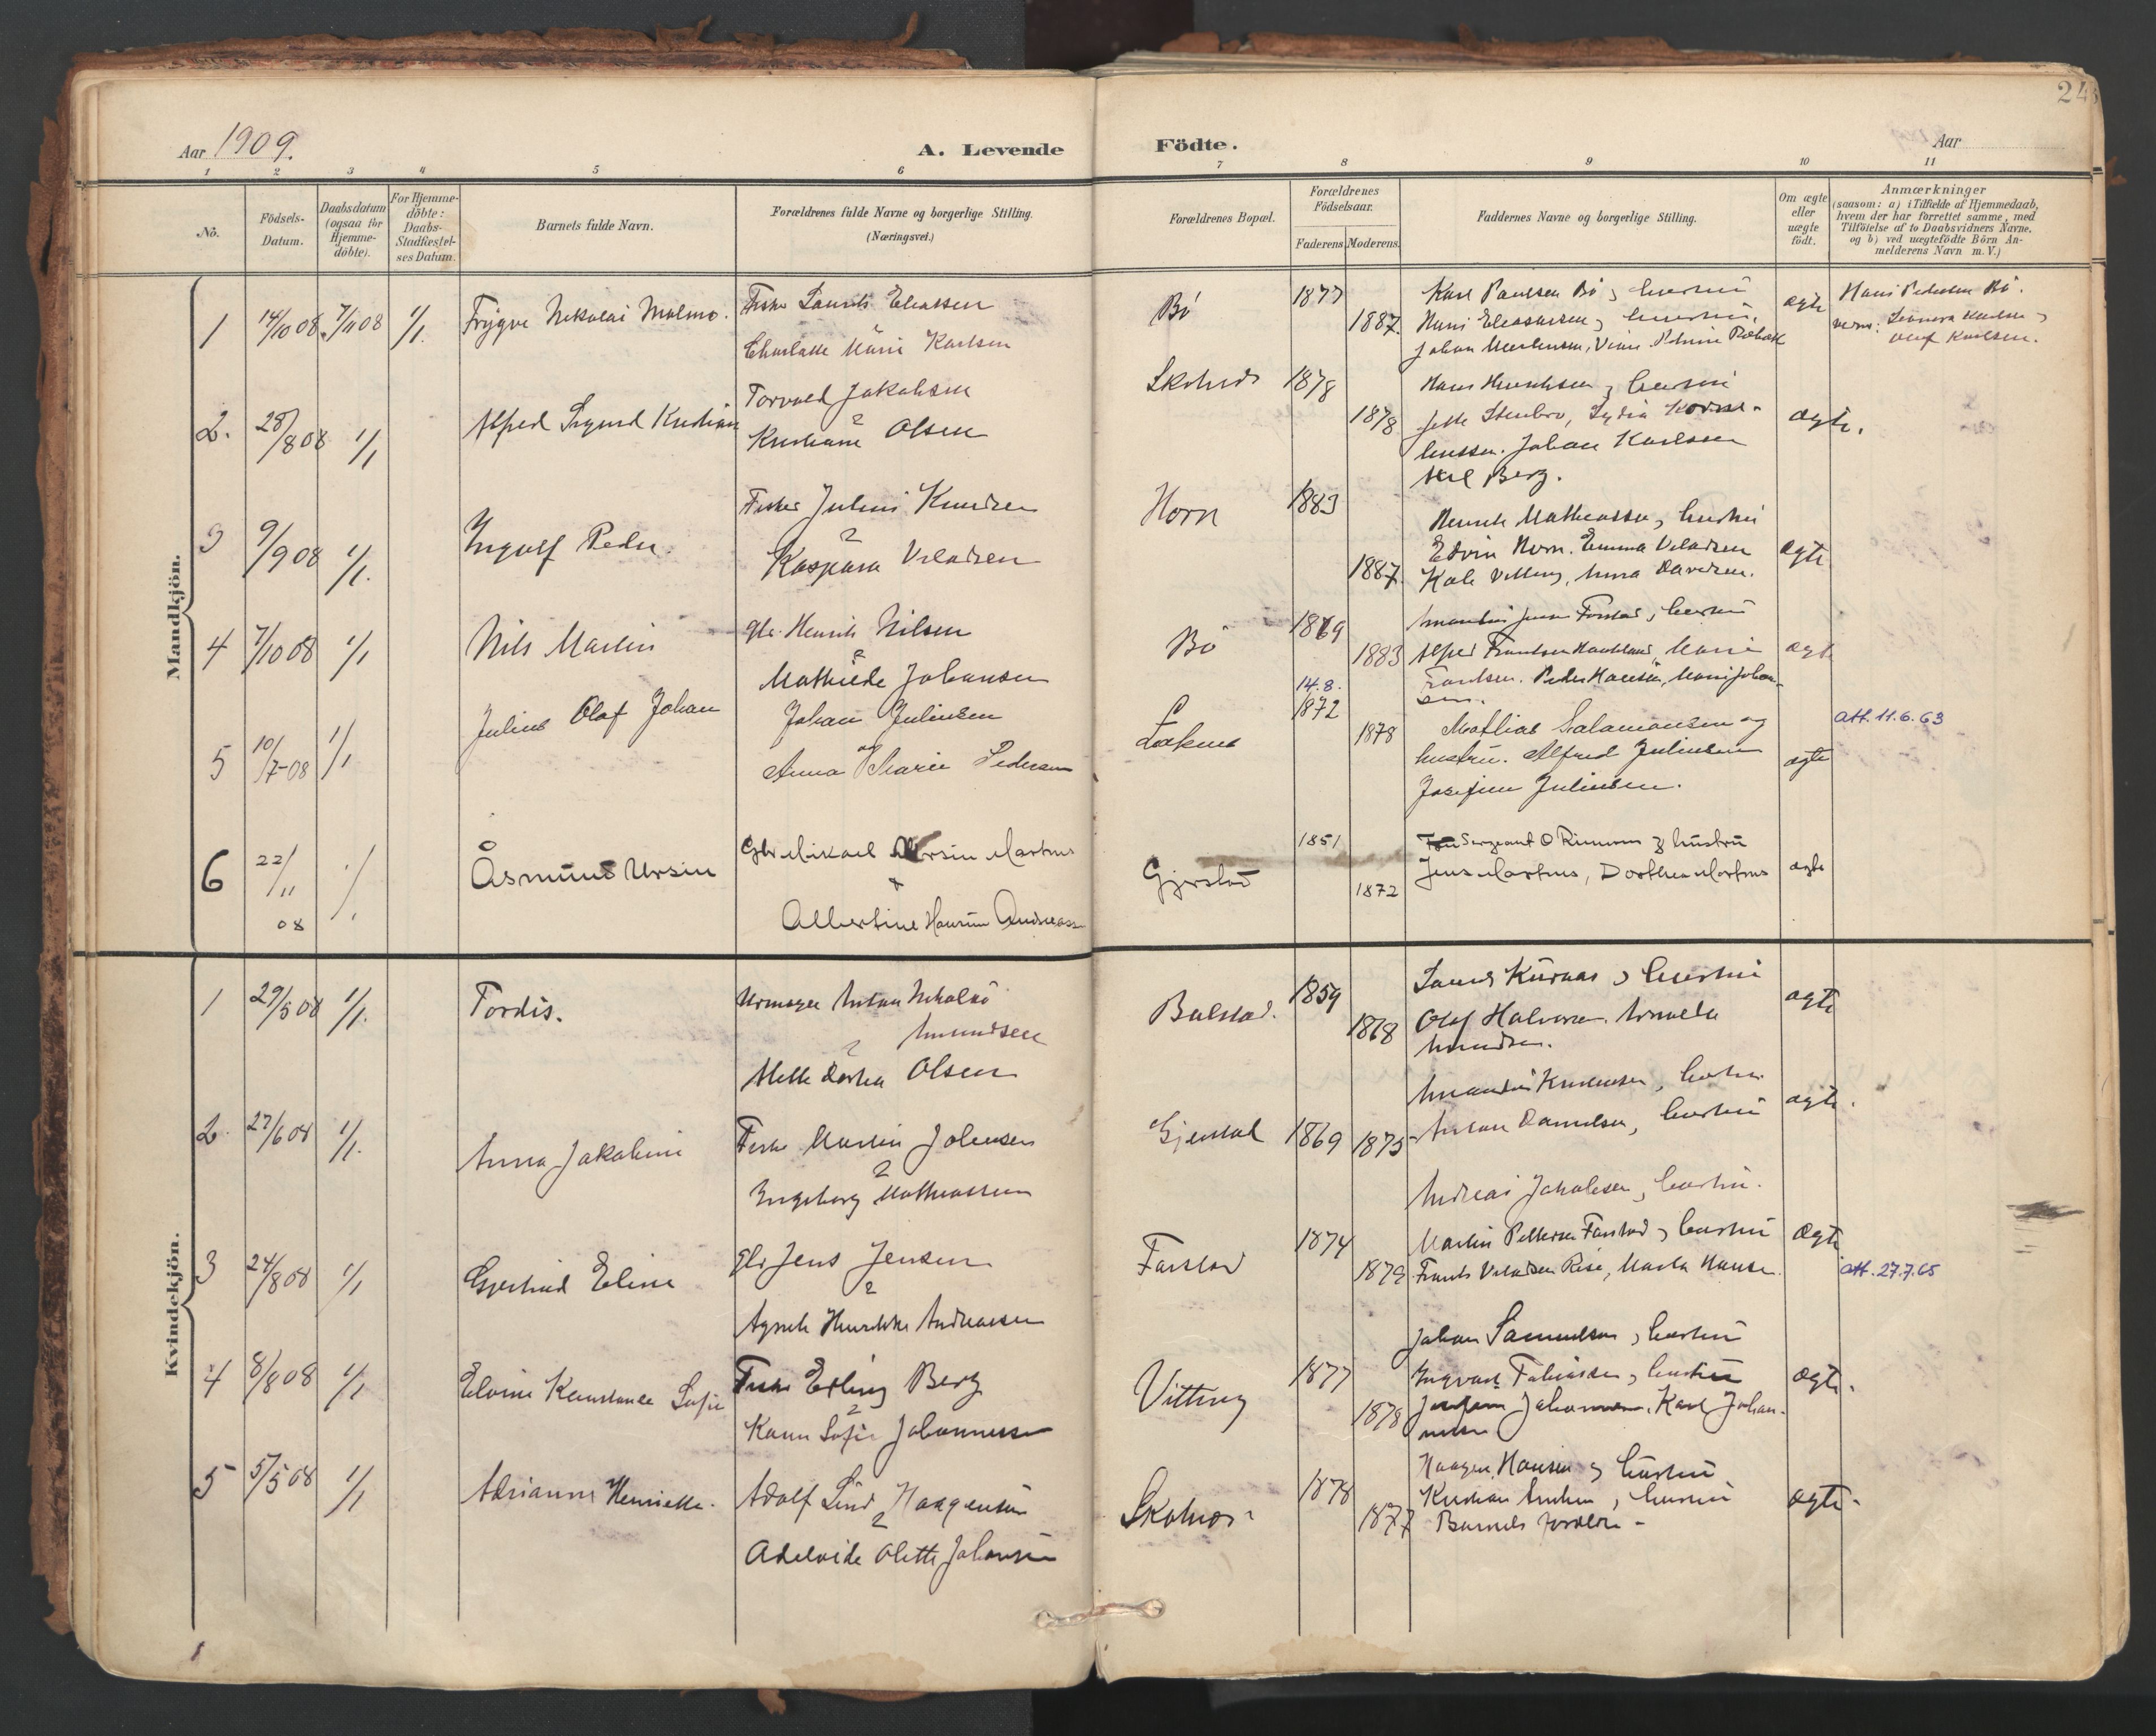 Aar 1909.
A. Levende
Födte.
Aar
24
1 2 3 4 5 6 7 8 9 10 11
No.
Födsels-
Datum.
Daabsdatum
(ogsaa for
Hjemme-
döbte).
For Hjemme-
döbte:
Daabs-
Stadfæstel-
ses Datum.
Barnets fulde Navn.
Forældrenes fulde Navne og borgerlige Stilling.
(Næringsvei.)
Forældrenes Bopæl.
Forældrenes
Födselsaar.
Faderens. Moderens.
Faddernes Navne og borgerlige Stilling.
Om ægte
eller
uægte
födt.
Anmærkninger
(saasom: a) i Tilfælde af Hjemmedaab,
hvem der har forrettet samme, med
Tilföielse af to Daabsvidners Navne.
og b) ved uægtefödte Börn An-
melderens Navn m. V.)
Mandkjön.
1 14/10 08 7/11 08 1/1. Trygve Nikolai Malmo.
Fisker Laurits Eliassen
Charlotte Marie Karlsen
Bö 1877 1887
Karl Paulsen Bö, hustru
Hans Eleasarsen, hustru.
Johan
ægte
Hans Pedersen Bö.
Olef Karlsen.
2. 28/8 08 1/1 Alfred Sigurd Kristian
Torvald Jakobsen
&
Kristiane Olsen
1878 1878
Hans Henriksen, hustru
Lydia
Johan Karlsen
Berg.
ægte.
3 9/9 08 1/1. Ingolf Peder.
Fisker Julius Knudsen
&
Kaspara Veladsen
Horn 1883 1887.
hustru
Edvin Horn. Emma Veladsen
Anna Davidsen.
ægte
4 7/10 08 1/1 Nils Martin
Gbr. Henrik Nilsen
&
Mathilde Johansen
Bö 1869 1883
hustru
Alfred Frantsen Marie
Frantsen. Peder Hansen, Marie Johan-
sen.
ægte
5 10/7-08 1/1 Julius Olaf Johan
Johan Juliussen
og
Anna Marie Pedersen
14.8.
1872 1878
Mathias Salamonsen og
hustru. Alfred Juliussen
Josefine Juliussen.
ægte
att. 11.6.63
6 22/11 08 1/1. Åsmund Ursin
Gbr Mikael Ursin Martens
+
Albertine Andreassen
Gjerstad 1851 1872
Sergeant O Rimmen & hustru
Jens Martens, Dorthea Martens
ægte
Kvindekjön.
1 29/5 08 1/1. Tordis.
Urmager Anton Nikolai
Amundsen
&
Mette Dortea Olsen
Balstad. 1859 1868
hustru
Olaf Halvorsen.
Amundsen.
ægte
2. 27/6 08 1/1. Anna Jakobine
Fisker Martin Johnsen
&
Ingeborg Mathiassen
Gjerstad 1869 1875
hustru
Anton Danielsen, hustru
Andreas Jakobsen, hustru.
ægte.
3 24/8 08 1/1 Gjertrud Eline
Gbr Jens Jensen
&
Agnete Henrikke Andreassen
Farstad 1874 1879
Martin Pettersen Farstad, hustru
Frants Veladsen Risè, Marta Hansen.
ægte
att. 27.7.65
4 8/8 08 1/1 Elvine Konstanse Sofie
Fisker Erling Berg
&
Karen Sofie Johannessen
Vitting 1877 1878
Johan Samuelsen, hustru
Ingvart Tobiassen, hustru
Josefine Johannessen. Karl Johan-
nessen
ægte.
5 5/5 08 1/1 Adrianne Henriette.
Adolf Lind Haagensen
&
Adelaide Olette Johansen
1878 1877
Haagen Hansen, hustru
Kristian hustru
Barnets forældre-
ægte-